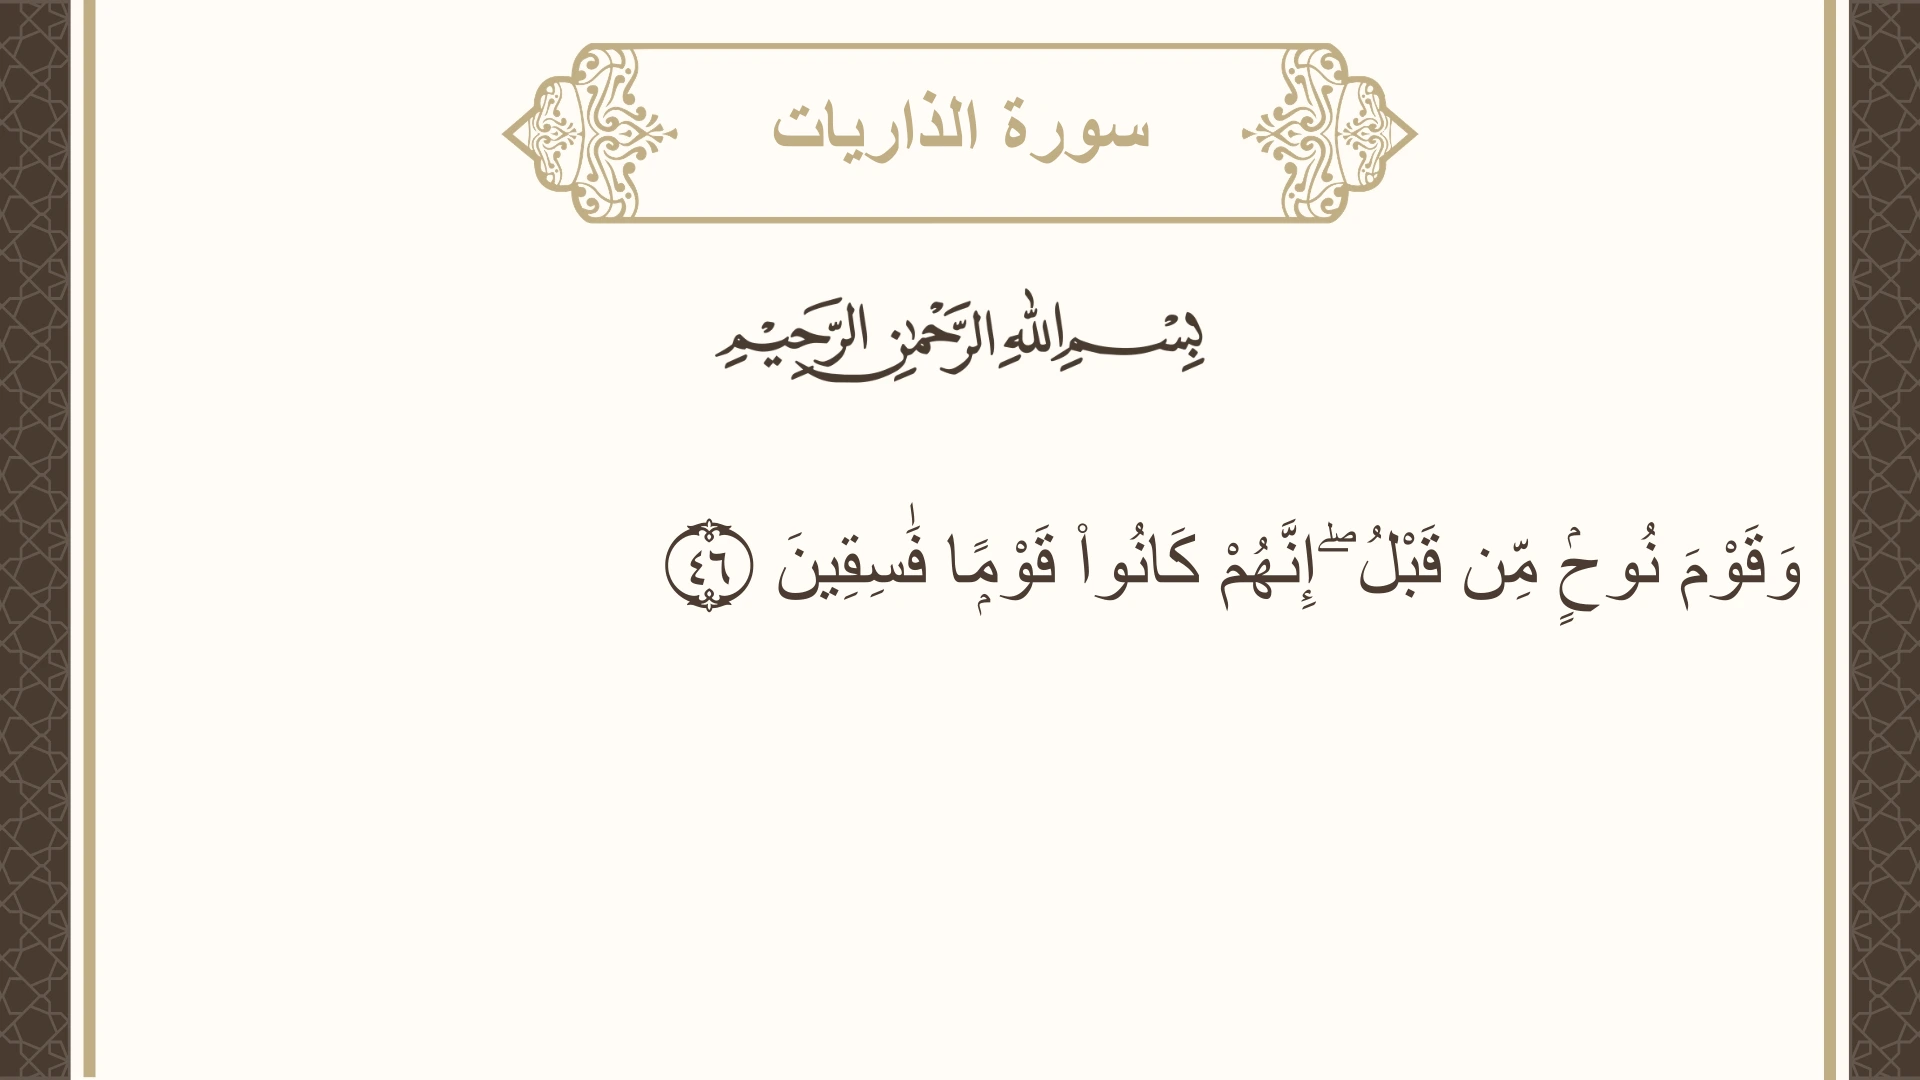 سورة الذاريات
بِسْمِ اللهِ الرَّحْمٰنِ الرَّحِيْمِ
وَقَوْمَ نُوحٖۢ مِّن قَبْلُۖ إِنَّهُمْ كَانُواْ قَوْمٗاۭ فَٰسِقِينَ ٤٦